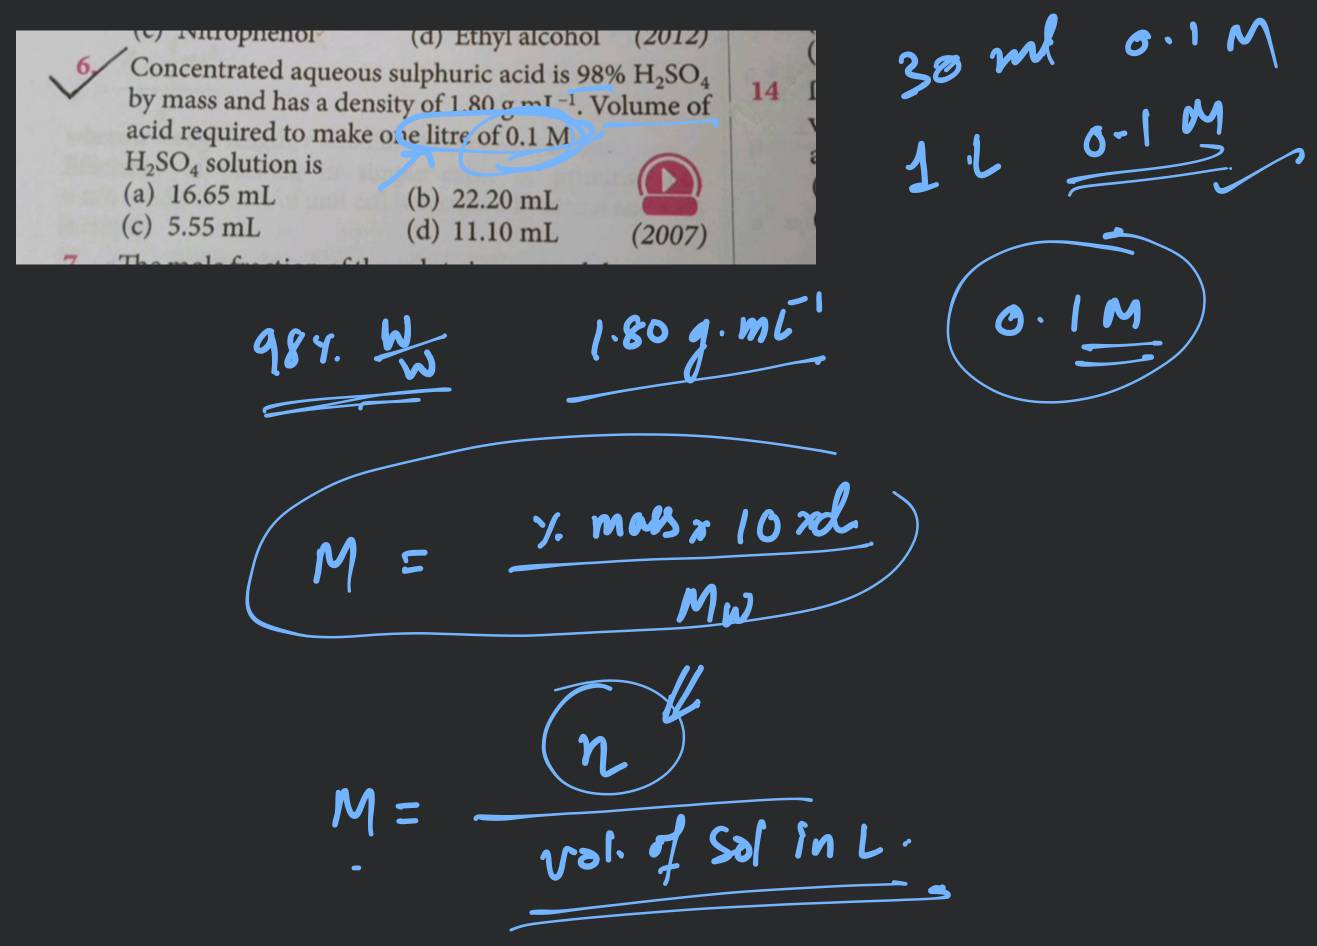 (c) Nitrophenol (d) Ethyl alcohol (2012)
6. Concentrated aqueous sulphuric acid is 98% H₂SO₄
by mass and has a density of 1.80 g mL⁻¹. Volume of
acid required to make one litre of 0.1 M
H₂SO₄ solution is
(a) 16.65 mL (b) 22.20 mL
(c) 5.55 mL (d) 11.10 mL (2007)
14
7. The mole fraction of the
30 ml 0.1 M
1 L 0.1 M
0.1 M
98%. W/W 1.80 g.mL⁻¹
M = % mass x 10 xd / Mw
M = n / vol. of Sol in L.